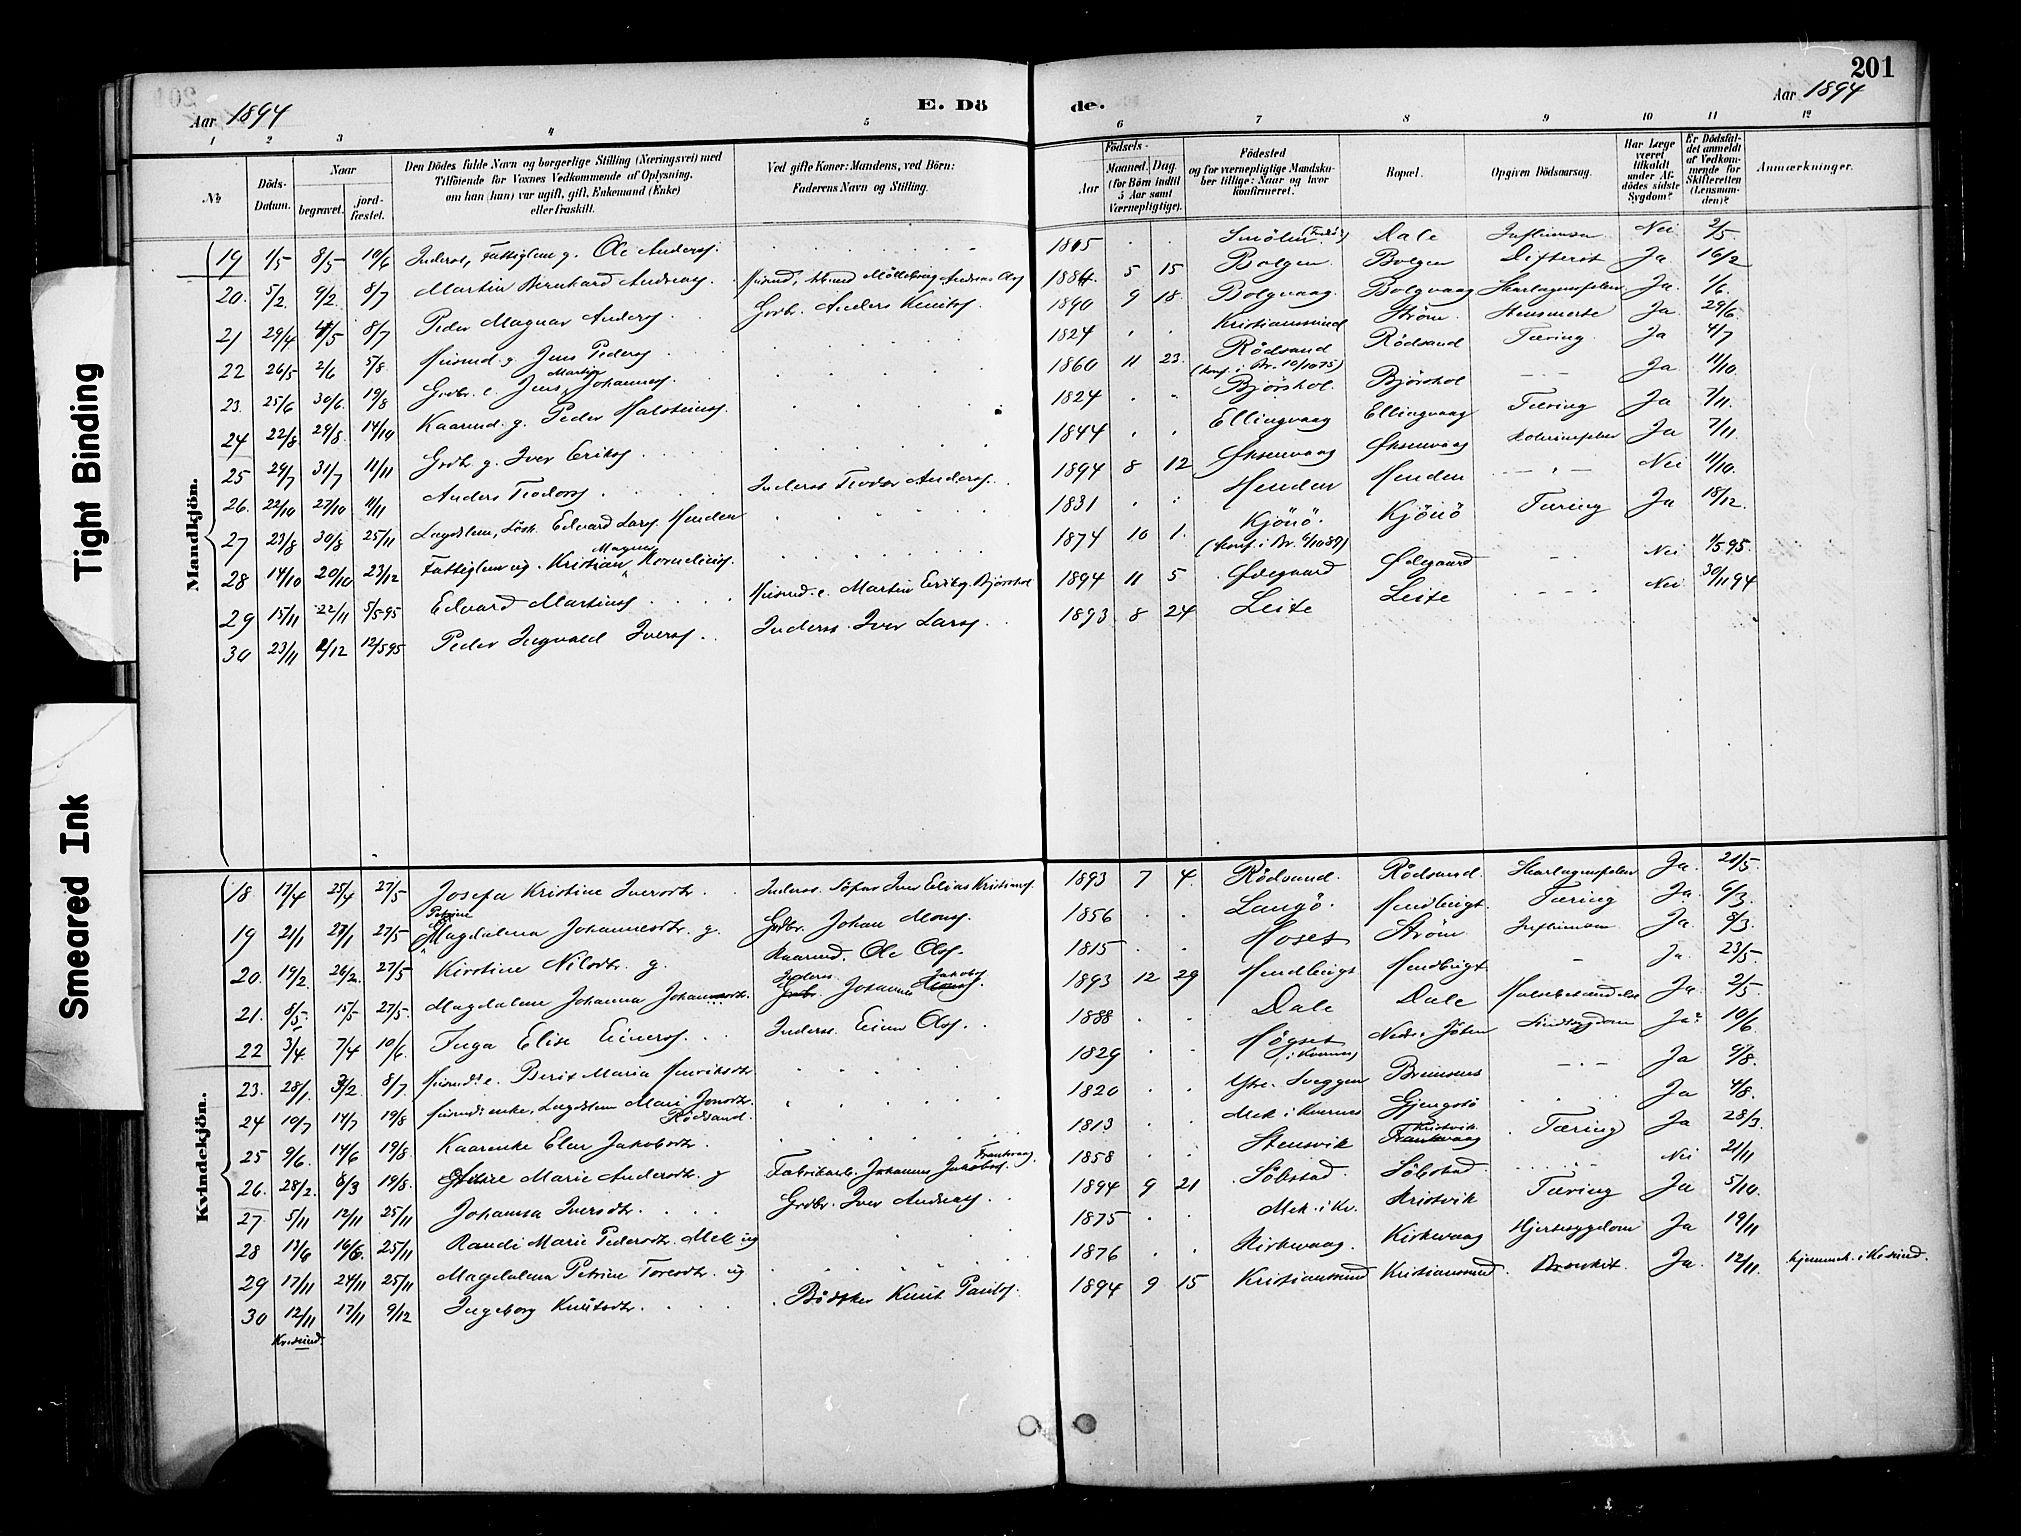 201
Aar 1894
E. Dö de.
Aar 1894
1 2 3 4 5 6 7 8 9 10 11 12
No
Döds-Datum.
Naar
begravet.
jord-fæstet.
Den Dödes fulde Navn og borgerlige Stilling (Næringsvei) med
Tilföiende for Voxnes Vedkommende af Oplysning,
om han (hun) var ugift, gift, Enkemand (Enke)
eller fraskilt.
Ved gifte Koner: Mandens, ved Börn:
Faderens Navn og Stilling.
Födsels-
Aar
Maaned. Dag
(for Börn indtil
5 Aar samt
Værnepligtige).
Födested
og for værnepligtige Mandsku-
ber tillige: Naar og hvor
konfirmeret.
Bopæl.
Opgiven Dödsaarsag.
Har Læge
været
tilkaldt
under Af-
dödes sidste
Sygdom?
Er Dödsfal-
det anmeldt
af Vedkom-
mende for
Skifteretten
(Lensman-
den)?
Anmærkninger.
Mandkjön.
19 1/5 8/5 10/6 Inderst, Fattiglem g. Ole Anders. 1815 Smölen Dale Influensa Nei 2/5
20. 5/2 9/2 8/7 Martin Bernhard Andreas. Andreas Ols 1884 5 15 Bolgen Bolgen Difterit Ja 16/2
21 29/4 4/5 8/7 Peder Magnar Anders. Grdbr. Anders Knuts. 1890 9 18 Bolgvaag Bolgvaag Skarlagensfeber Ja. 1/6
22 26/5 2/6 5/8 Huusmd. g. Jens Peders. 1824 Kristianssund Ström Ja 29/6
23. 25/6 30/6 19/8 Grdbr. e. Jens Martin Johannes. 1860 11 23. Rödsand (konf. i Br. 10/10 75) Rödsand Tæring Ja 4/7
24 22/8 29/8 14/10 Kaarmd. g. Peder Halsteins. 1824 Björshol Björshol Ja 11/10
25 29/7 31/7 11/11 Grdbr g. Iver Eriks. 1844 Ellingvaag Ellingvaag Tæring Ja 7/11
26. 22/10 27/10 11/11 Anders Teodors. Inderst Teodor Anders. 1894 8 12 Öksenvaag Öksenvaag Ja 7/11
27 23/8 30/8 25/11 Lægdslem, Edvard Lars. Henden 1831 Henden Henden Nei 11/10.
28 14/10 20/10 23/12 Fattiglem ug. Kristian Magnus Kornelius. 1874 10 1. Kjönö. (konf. i Br. 6/10 89) Kjönö Tæring Ja 18/12.
29 15/11 22/11 5/5 95 Edvard Martins. Huusmd. e. Martin Eriks. Björshol 1894 11 5 Ödegaard Ödegaard Nei 1/5 95.
30 23/11 2/12 12/5 95 Peder Ingvald Ivers. Inderst. Iver Lars. 1893 8 24 Leite Leite Nei 30/11 94
Kvindekjön.
18 17/4 25/4 27/5 Josefa Kristine Iversdtr. Inderst. Iver Elias Kristians. 1893 7 4. Rödsand. Rödsand. Skarlagensfeber Ja. 21/5
19 21/1 28/1 27/5 Petrine Magdalena Johannesdtr. g. Grdbr. Johan Mons. 1856 Langö. Hendbugt. Tæring Ja. 6/3
20. 19/2 26/2 27/5 Kirstine Nilsdtr. g. Kaarmd. Ole Ols. 1815 Hoset Ström Influensa Ja. 8/3.
21. 8/5 15/5 27/5. Magdalene Johanna Johannesdtr. Inderst. Johannes Jakobs. 1893 12 29 Hendbugt Hendbugt Ja. 23/5
22 3/4 7/4 10/6. Inga Elise Einers. Inderst. Einer Ols. 1888 Dale Dale Ja. 2/5
23. 28/1 3/2 8/7 Huusmd. e. Berit Maria Henriksdtr. 1829 Högset (i Kvernes) Nedre Jöten Sindssygdom Ja? 10/6
24 10/7 14/7 19/8 Huusmdsenke, Lægdslem Mari Jonsdtr. Rödsand. 1820 Ytre Sveggen Bremsnes Ja 9/8.
25 9/6. 14/6 19/8 Kaarenke Elen Jakobsdtr. 1813 Mek i Kvernes Gjengstö Ja 4/8.
26. 28/2. 8/3 19/8. Marie Andersdtr. g Fabrikarb. Johannes Jakobs. Frantsvaag 1858 Stensvik Kristvik Tæring Ja 28/3
27. 5/11 12/11 25/11 Johanna Iversdtr. Grdbr. Iver Andreas. 1894 9 21 Söbstad Söbstad Nei 21/11
28 13/6 16/6. 25/11 Randi Marie Pedersdtr. Mek ug 1875 Mek. i Kv. Kristvik Tæring Ja 5/10
29 17/11 24/11 25/11 Magdalena Petrine Toresdtr. ug 1876 Kirkevaag. Kirkevaag Hjertesygdom Ja 19/11
30 12/11 17/11 9/12 Ingeborg Knutsdtr. Bödker Knut Pauls. 1894 9 15 Kristianssund Kristianssund. Bronkit. Ja. 12/11. hjemmed. i Kr.sund.
Kr.sund.
Tight Binding
Smeared Ink